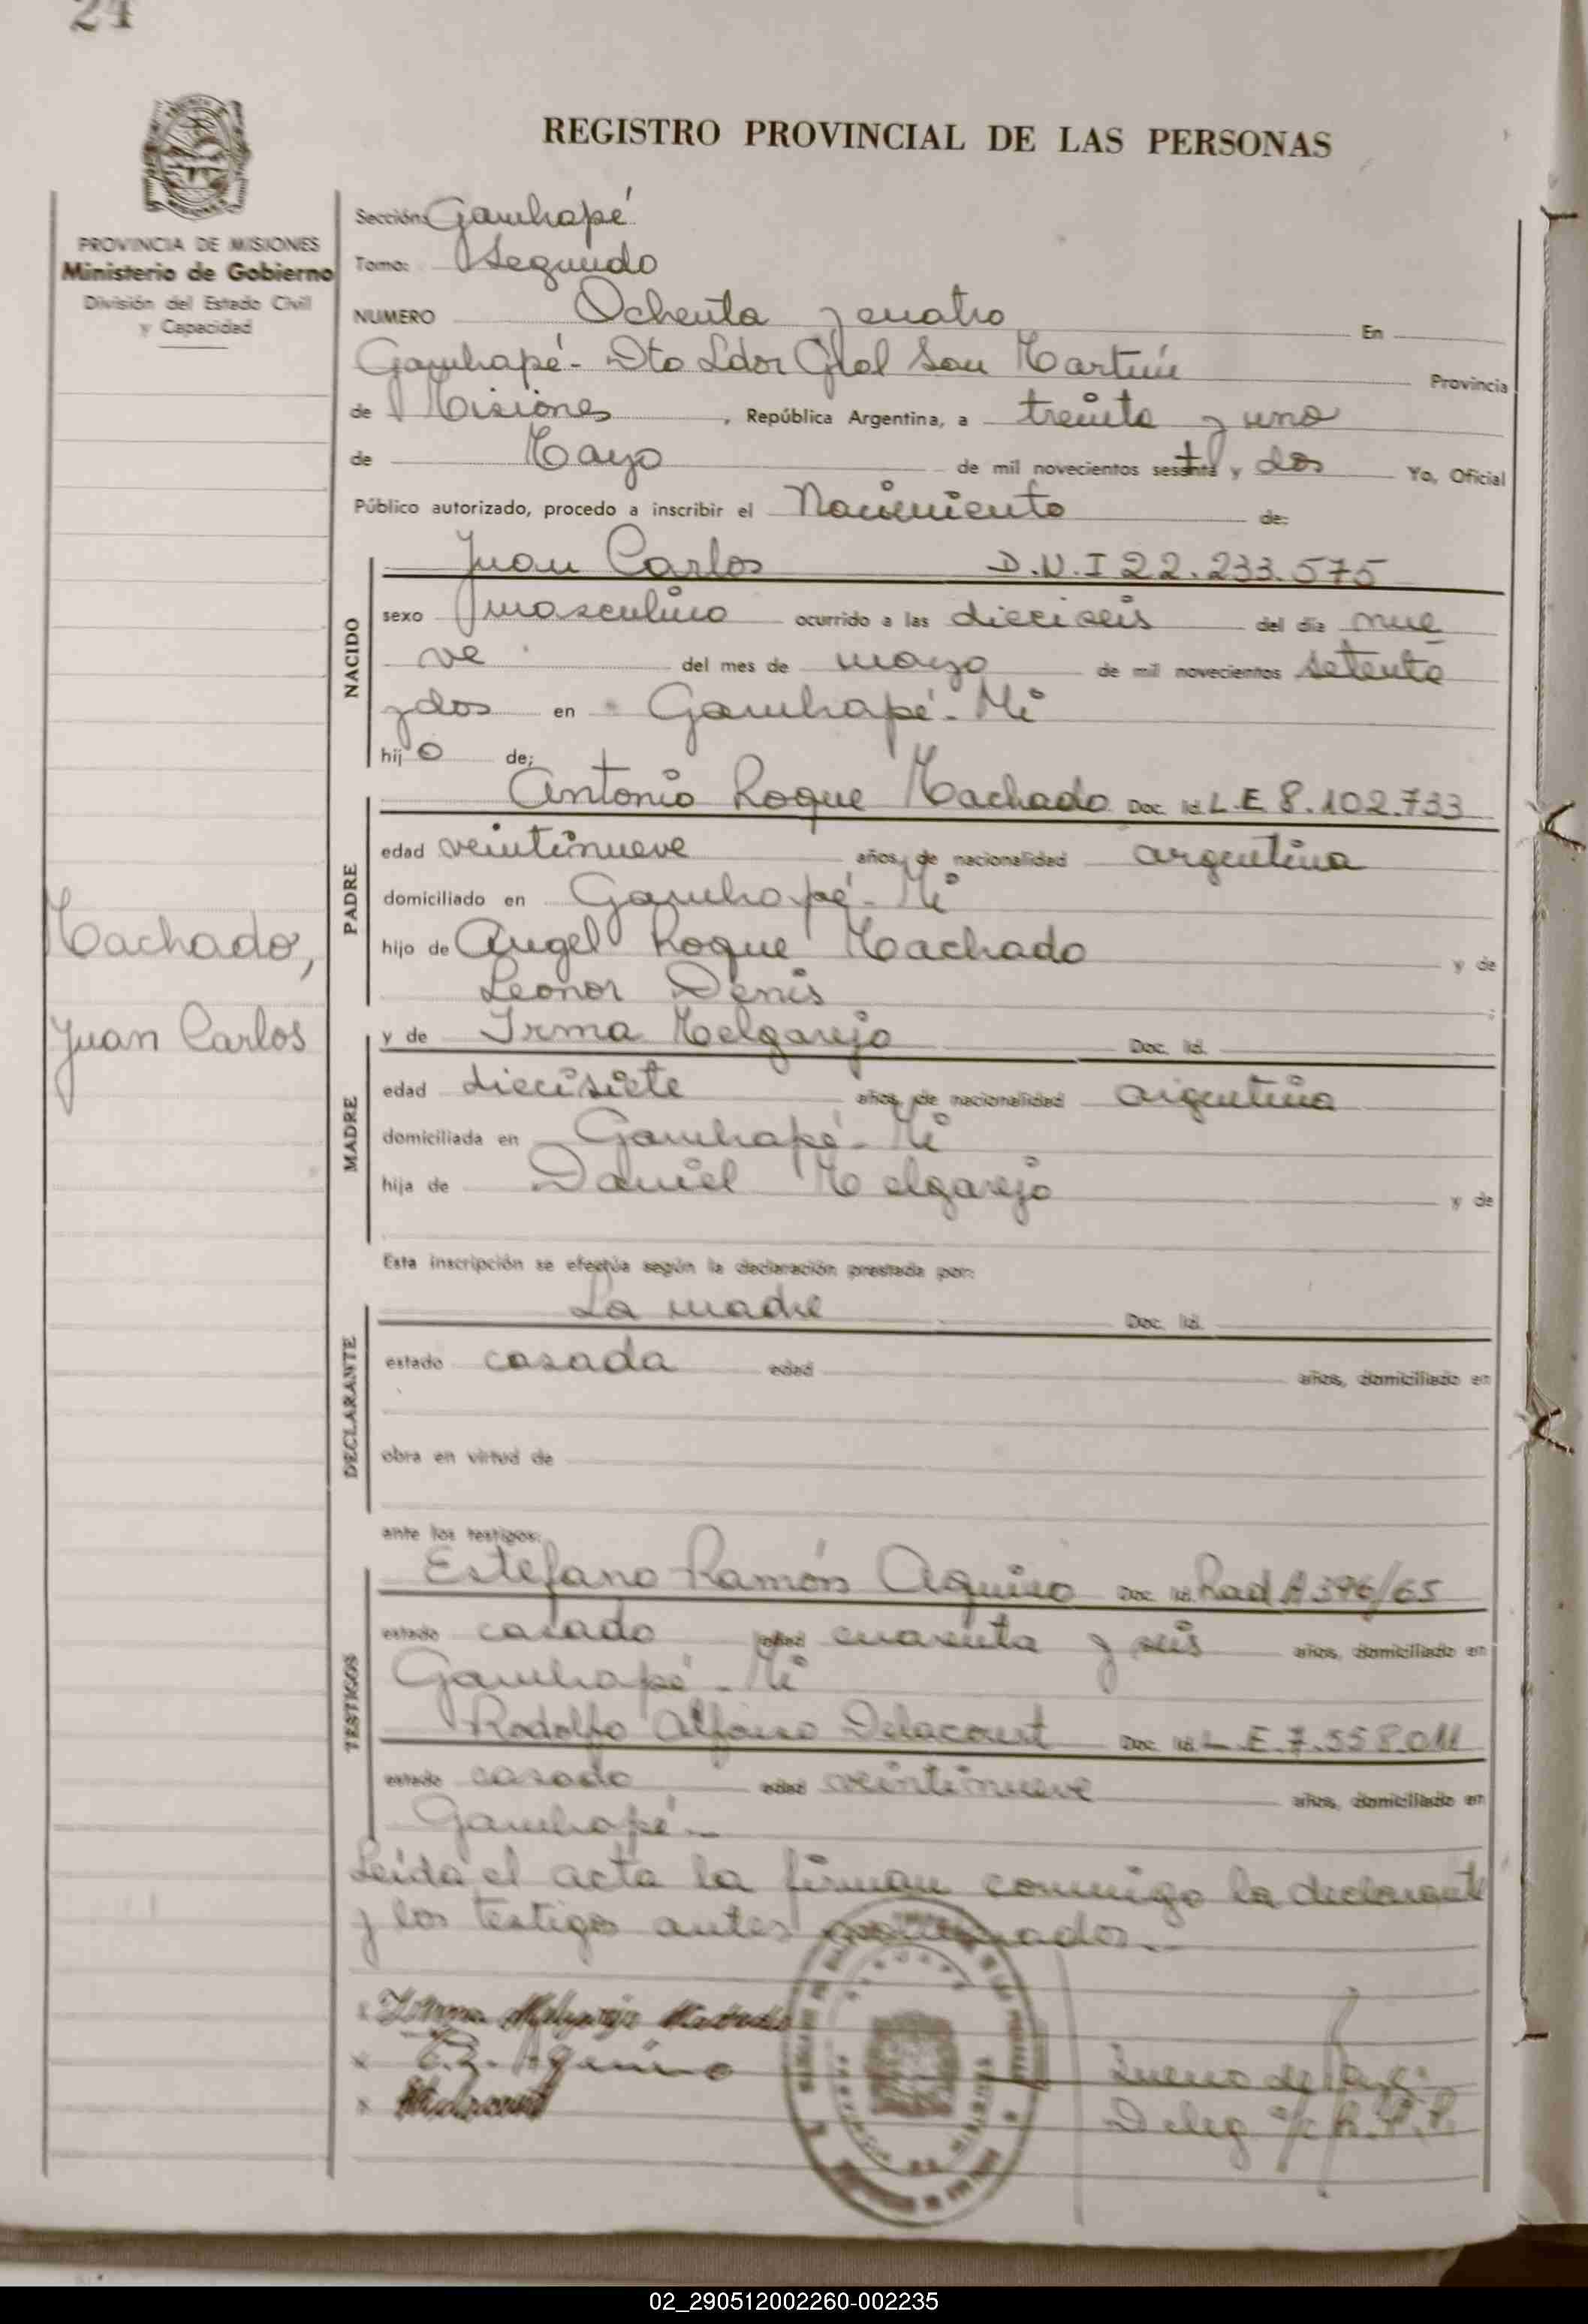 24
REGISTRO PROVINCIAL DE LAS PERSONAS
PROVINCIA DE MISIONES
Ministerio de Gobierno
División del Estado Civil
y Capacidad
Sección: Garuhapé
Tomo: Segundo
NUMERO Ochenta y cuatro En
Garuhapé - Dto Ldor Gral San Martín Provincia
de Misiones, República Argentina, a treinta y uno
de Mayo de mil novecientos setenta y dos Yo, Oficial
Público autorizado, procedo a inscribir el Nacimiento de:
NACIDO
Juan Carlos D.N.I 22.233.575
sexo masculino ocurrido a las dieciseis del día nue
ve del mes de mayo de mil novecientos setenta
y dos en Garuhapé - Mi
hijo de;
PADRE
Antonio Roque Machado Doc. Id. L.E 8.102.733
edad veintinueve años, de nacionalidad argentina
domiciliado en Garuhapé - Mi
hijo de Angel Roque Machado y de
Leonor Denis ;
Machado,
Juan Carlos
MADRE
y de Irma Melgarejo Doc. Id.
edad diecisiete años, de nacionalidad argentina
domiciliada en Garuhapé - Mi
hija de Daniel Melgarejo y de
Esta inscripción se efectúa según la declaración prestada por:
DECLARANTE
La madre Doc. Id.
estado casada edad años, domiciliado en
obra en virtud de
ante los testigos:
TESTIGOS
Estefano Ramón Aquino Doc. Id. Rad A 376/65
estado casado edad cuarenta y seis años, domiciliado en
Garuhapé - Mi
Rodolfo Alfonso Delacourt Doc. Id. L.E.7.558.011
estado casado edad veintinueve años, domiciliado en
Garuhapé.-
Leída el acta la firman conmigo la declarante
y los testigos antes mencionados.-
x Irma Melgarejo Machado
x E.R. Aquino
x Delacourt
Deleg R.P.P.
02_290512002260-002235